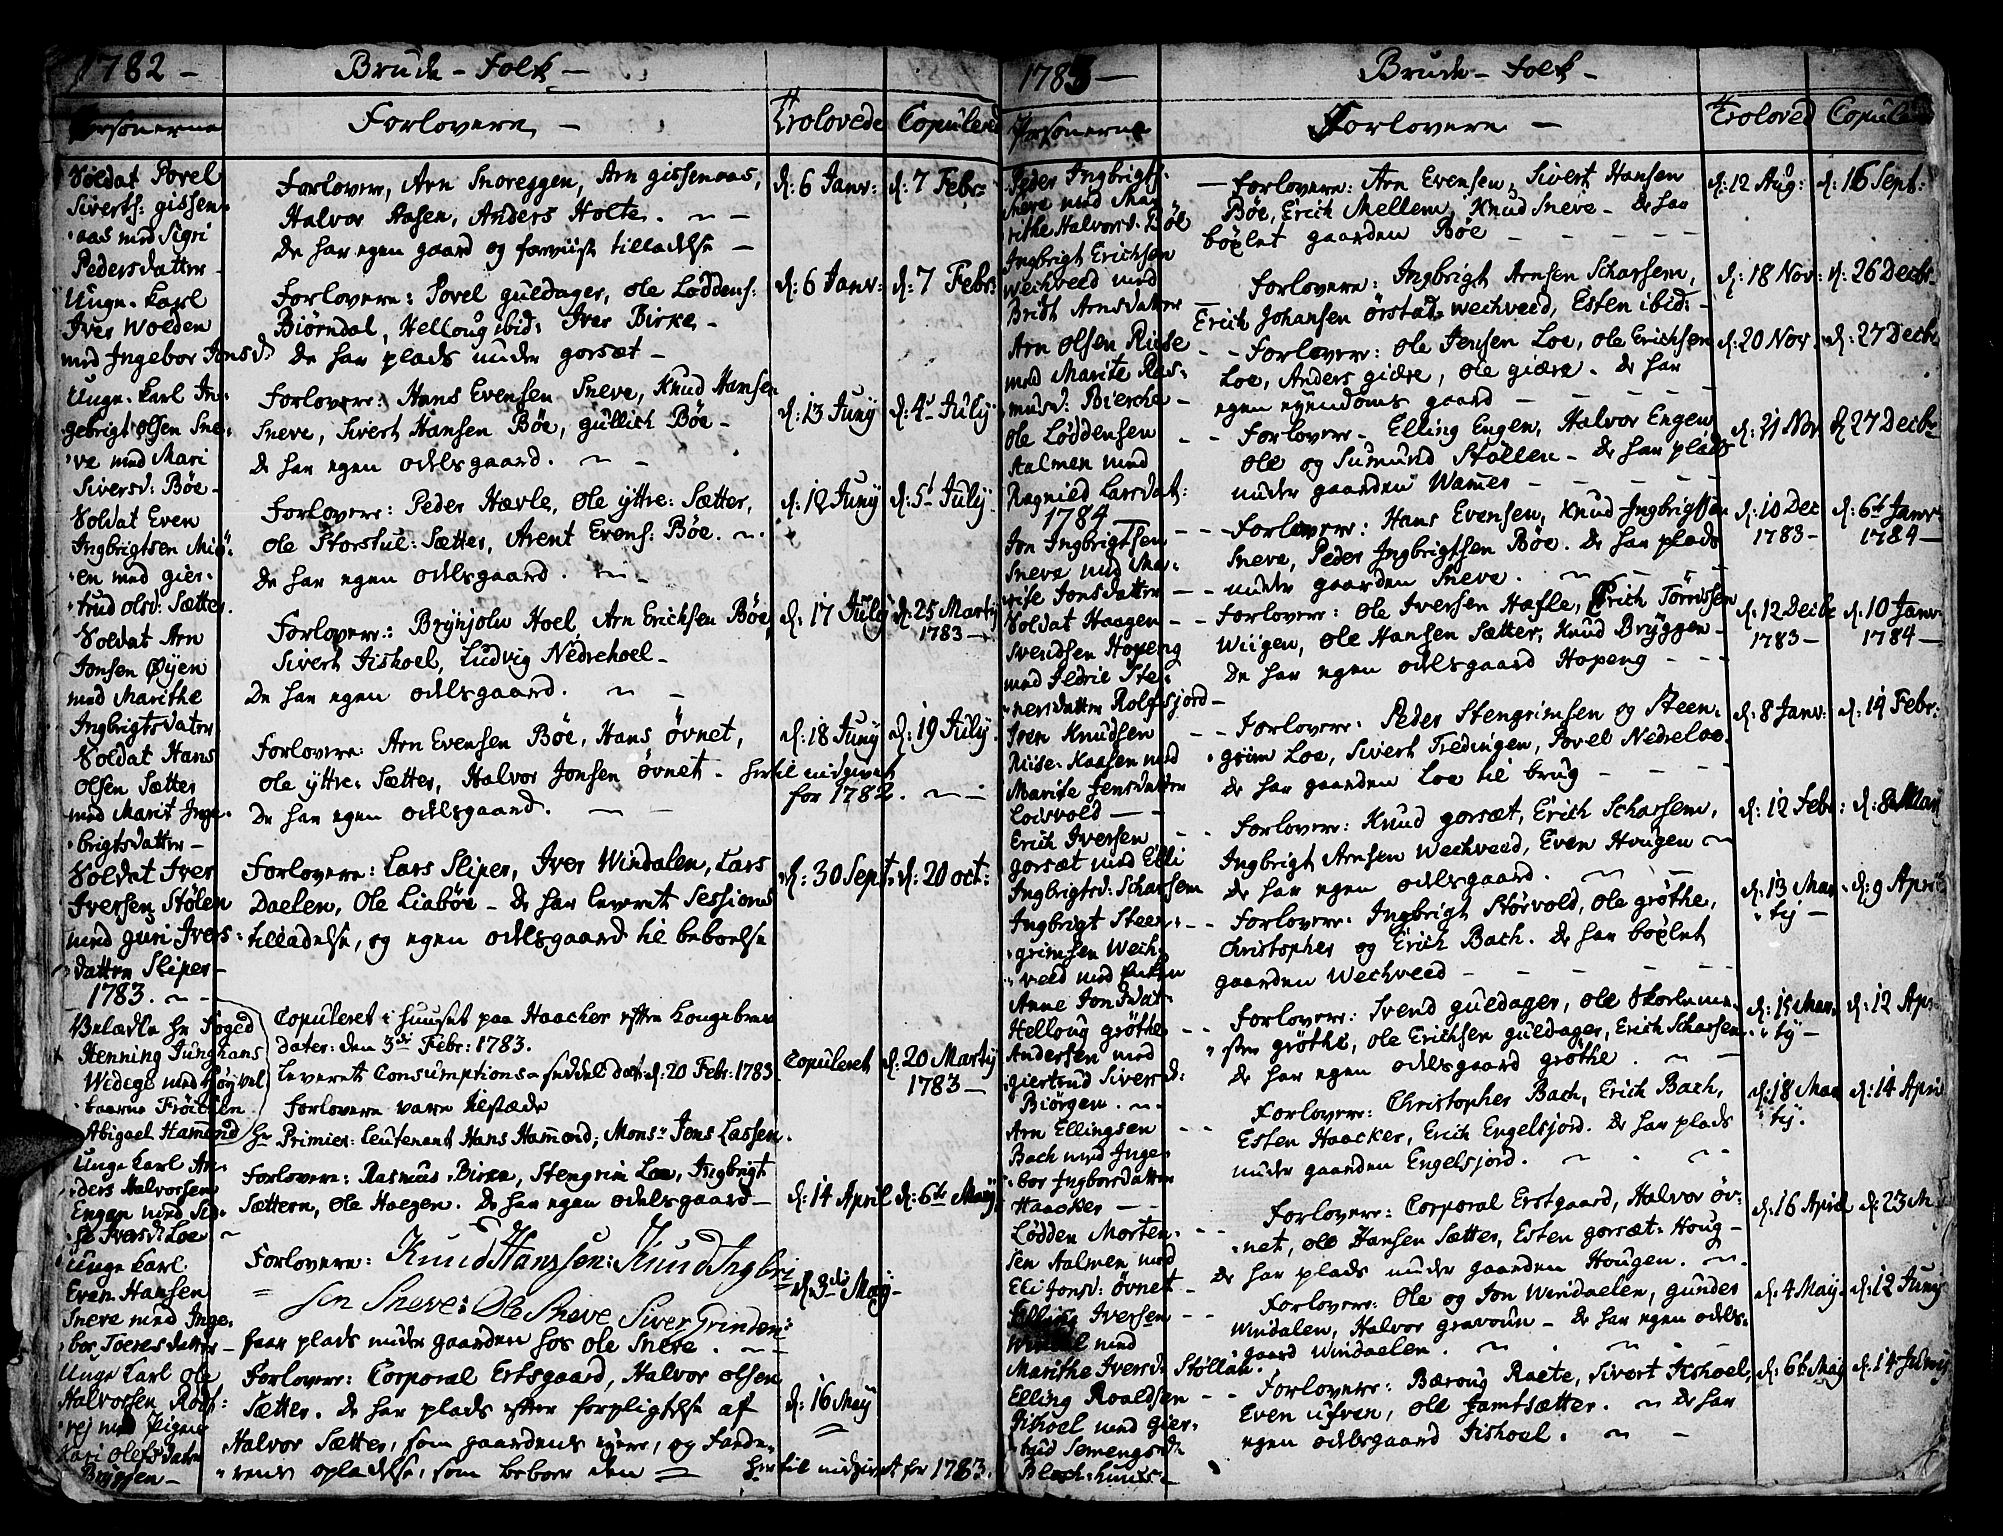 1782 –
Brude - Folk –
Personerne
Forlovere –
Trolovede
Copulered
Soldat Povel
Siverts: gissen-
aas med Sigri
Pedersdatter –
Forlovere, Arn Snoreggen, Arn gissenaas,
Halvor Aasen, Anders Holte. ~ –
De har egen gaard og forviist tilladelse –
d: 6 Janv:
d: 7 Febr:
Unge-karl
Iver Woeden
med Ingebor Jonsd:
Forlovere: Povel guldager, Ole Løddens:
Biørndal, Helloug ibid: Iver Birke –
De har plads under gorsæt –
d: 6 Janv:
d: 7 Febr:
Unge-karl In-
gebrigt olsen Sne-
ve med Mari
Siversd: Bøe –
Forlovere: Hans Evensen Sneve, Knud Hansen
Sneve, Sivert Hansen Bøe, gullich Bøe –
De har egen odelsgaard. ~ –
d: 13 Juny
d: 4de July
Soldat Even
Ingbrigtsen Miø-
en med gier-
trud olsd: Sætter.
Forlovere: Peder Hævle, Ole yttre: Sætter,
Ole Storstue: Sætter, Arent Evens: Bøe. ~
De har egen odelsgaard. ~
d: 12 Juny
d: 5t July
Soldat Arn
Jonsen Øyen
med Marithe
Ingbrigtsdater
Forlovere: Brynjolv Hoel, Arn Erichsen Bøe,
Sivert Fishoel, Ludvig Nedrehoel –
De har egen odelsgaard. ~ –
d: 17 July
d: 25 Marty
1783 –
Soldat Hans
Olsen Sætter
med Marit Inge-
brigtsdatter –
Forlovere: Arn Evensen Bøe, Hans Øvnet,
Ole yttre: Sætter, Halvor Jonsen Øvnet –
De har egen odelsgaard. – –
d: 18 Juny
d: 19 July
hertil indgivet
for 1782. ~ –
Soldat Iver
Iversen Stølen
med guri Ivers-
datter Sliper –
Forlovere: Lars Sliper, Iver Windalen, Lars
Daelen, Ole Liabøe – De har leveret Sessions
tilladelse, og egen odelsgaard til beboelse
d: 30 Sept:
d: 20 oct:
1783. ~ –
Velædle Hr Foged
Henning Junghans
Wedege med Høyvel-
baarne Frøicken
Abigael Hamond
Copuleret i huuset paa Haacker efter kongebrev
dater: den 3de Febr: 1783.
leveret Consumptions-seddel dat: d: 20 Febr: 1783
Forlovere vare tilstæde
Hr Primier: leutenant Hans Hamond, Monsr Jens Lassen.
Copuleret
d: 20 Marty
1783 –
Unge karl An-
ders Halvorsen
Engen med Sid-
se Iversd: Loe ~
Forlovere: Rasmus Birke, Stengrim Loe, Ingbrigt
Sættern, Ole Haegen. De har egen odelsgaard –
d: 14 April
d: 6te Maij
Unge karl
Even Hansen
Sneve med Inge-
bor Toeresdatter –
Forlovere: Knud Hanssen: Knud Ingbri
= sen Sneve: Ole Sneve Siver Grinden:
faar plads under gaarden hos Ole Sneve. ~ –
d: 3de May –
Unge karl Ole
Halvorsen Rods-
vej med Pigen
Kari Olesdater
Bryggen –
Forlovere: Corporal Ertsgaard, Halvor olsen
Sætter. De har plads efter forpligtelse af
Halvor Sætter, som gaardens eyere, og Farde-
rens opladelse, som beboer den =
d: 16 Maij
hertil indgivet for 1783.
1783 –
Brude - Folk –
Personerne
Forlovere –
Troloved
Copulered
Peder Ingbrigts:
Sneve med Mar
rithe Halvorsd: Bøe
– Forlovere: Arn Evensen, Sivert Hansen
Bøe, Erich Mellem, Knud Sneve – De har
bøxlet gaarden Bøe – – – –
d: 12 Aug:
d: 16 Sept:
Ingbrigt Erichsen
Wechveed med
Brit Arnsdatter
Forlovere: Ingbrigt Arnsen Scharsem,
Erich Johansen Ørstad, Wechveed, Esten ibid: –
d: 18 Nov:
d: 26 Decbr
Arn Olsen Riise
med Marite Ras-
musd: Bierche –
– – Forlovere: Ole Jensen Loe, Ole Erichsen
Loe, Anders giære, Ole giære. De har
egen eyendoms gaard – – – –
d: 20 Nov.
d: 27 Decbr
Ole Løddensen
Aalmen med
Ragnied Larsdat:
– – Forlovere – Elling Engen, Halvor Engen
Ole og Sumund Støllen – De har plads
under gaarden Wammer – – – –
d: 21 Nov
d: 27 Decbr
1784 –
Jon Ingbrigtsen
Sneve med Ma-
rite Jonsdatter –
– – Forlovere: Hans Evensen, Knud Ingbrigtsen
Sneve, Peder Ingbrigtsen Bøe. De har plads
under gaarden Sneve. ~ – –
d: 10 Dec
1783 –
d: 6te Janv
1784 –
Soldat Haagen
Svendsen Hopeng
med Fedrie Ste-
nersdatter Rolfsjord –
Forlovere: Ole Iversen Hafle, Erich Tørrisen
Wiigen, Ole Hansen Sætter, Knud Bryggen –
De har egen odelsgaard Hopeng – – –
d: 12 Decbr
1783 –
d: 10 Janv
1784 –
Iven Knudsen
Riise-Haasen med
Marite Jensdatter
Loisvold – –
– – Forlovere: Peder Stengrimsen og Steen-
grim Loe, Sivert Tredingen, Povel Nedreloe.
De har gaarden Loe til brug – – –
d: 8 Janv:
d: 14 Febr:
Erich Iversen
gorsæt med Elli
Ingbrigtsd: Scharsem
– – Forlovere: Knud gorsæt, Erich Scharsem,
Ingbrigt Arnsen Wechveed, Even Hougen ~
De har egen odelsgaard. ~ –
d: 12 Febr:
d: 8de Marty
Ingbrigt Steen-
grimsen Wech-
veed med Enken
Anne Jonsdat-
– – Forlovere: Ingbrigt Størvold, Ole grøthe,
Christopher og Erich Bach. De har bøxlet
gaarden Wechveed – – – –
d: 13 Mar
tij –
d: 9 April
Helloug grøthe
Andersen med
giertrud Siversd:
Biørgen. ~
– – Forlovere: Svend guldager, Ole Skorlumme
sten grøthe, Ole Erichsen guldager, Erich Scharsem
De har egen odelsgaard grøthe. ~ –
d: 15 Mar
tij –
d: 12 Apr
Arn Ellingsen
Bach med Inge-
bor Ingborsdatter
Haacker – –
– – Forlovere: Christopher Bach, Erich Bach,
Esten Haacker, Erich Engelsjord. De har plads
under gaarden Engelsjord. ~ ~
d: 18 Mar
tij.
d: 14 April
Lødden Morten-
sen Aalmen med
Eli Jonsd: Øvnet –
– – Forlovere: Corporal Erstgaard, Halvor Øv-
net, Ole Hansen Sætter, Esten gorsæt: Houg –
De har plads under gaarden Hougen. ~
d: 16 April
d: 23 M
Elling Iversen
Windal med
Marithe Iversd: Støllale.
– – Forlovere: Ole og Jon Windaelen, gunder
Windalen, Halvor gravoun – De har egen odels-
gaard Windaelen. ~ – ~
d: 4 May.
d: 12 Juny
Elling Roaldsen
Fishoel med gier-
trud Semengsrd:
Bloch-huus –
– – Forlovere: Bæroug Raete, Sivert Fishoel,
Even ufven, Ole Jamtsætter. ~ De har
egen odelsgaard Fishoel. ~ –
d: 6te May
d: 14 Juny